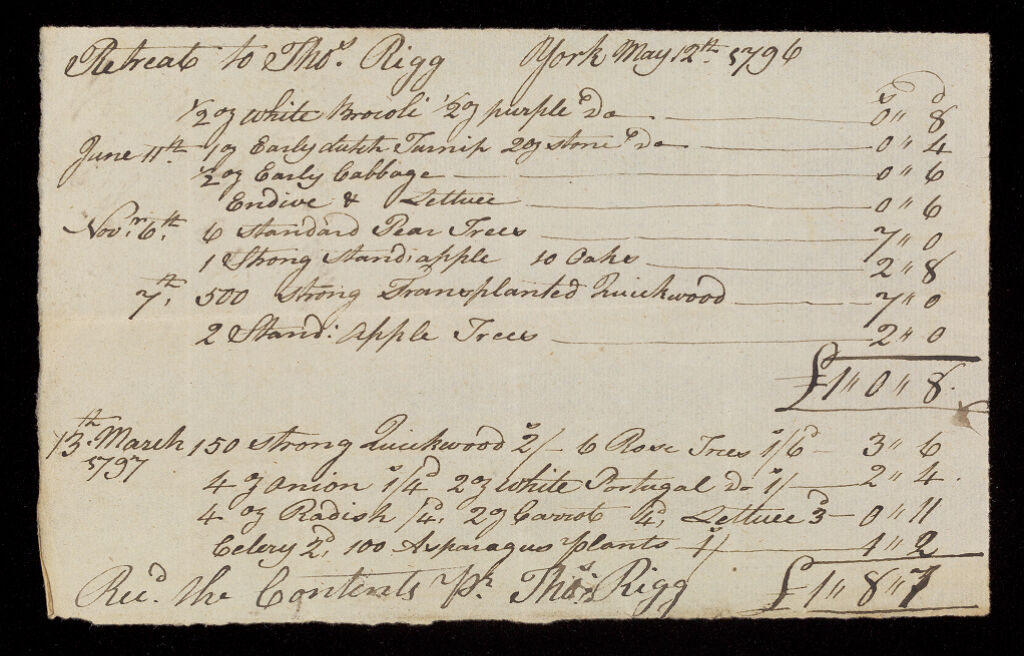 Retreat to Thos. Rigg York May 12th. 1796
s d
½ oz White Brocoli ½ oz purple Do 0 " 8
June 11th. 1 oz Early dutch Turnip 2 oz stone Do 0 " 4
½ oz Early Cabbage 0 " 6
Endive & Lettuce 0 " 6
Novr. 6th. 6 Standard Pear Trees 7 " 0
1 Strong Stand: apple 10 Oaks 2 " 8
7th. 500 Strong Transplanted Quickwood 7 " 0
2 Stand: Apple Trees 2 " 0
£1 " 0 " 8.
13th. March 150 Strong Quickwood 2s/– 6 Rose Trees 1s/6d – 3 " 6
1797
4 oz Onion 1s/4d 2 oz White Portugal Do 1s/ 2 " 4.
4 oz Radish /4d. 2 oz Carrot 4d. Lettuce 3d – 0 " 11
Celery 2d. 100 Asparagus Plants 1s/ 1 " 2
Recd. the Contents pr. Thos. Rigg £1 " 8 " 7